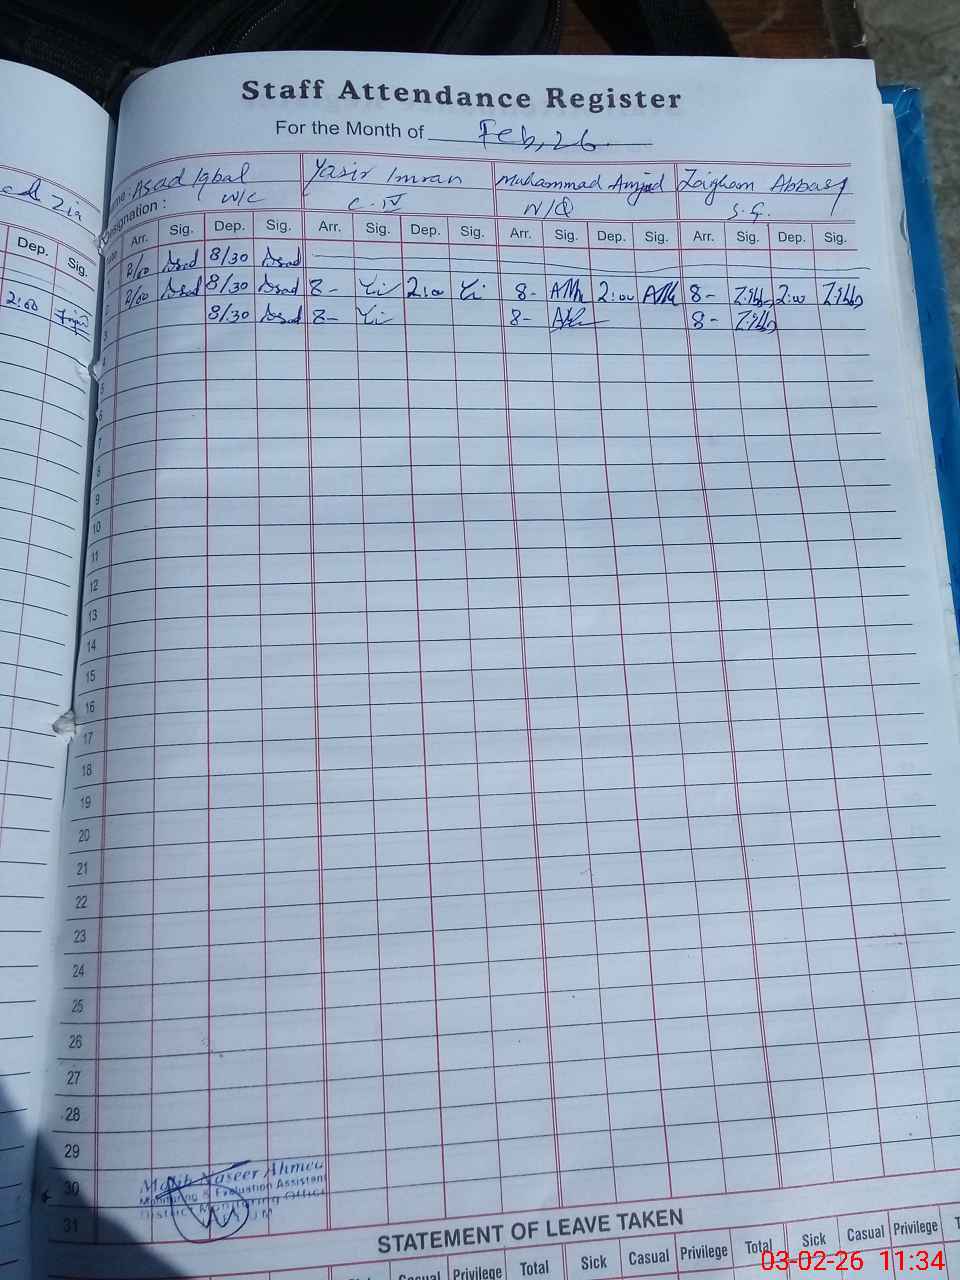 Staff Attendance Register
For the Month of Feb, 26.
Asad Iqbal Yasir Imran Muhammad Amjad Zaigham Abbas
Designation : W/C C-IV N/Q S.G.
Dep. Sig. Arr. Sig. Dep. Sig. Arr. Sig. Dep. Sig. Arr. Sig. Dep. Sig. Arr. Sig. Dep. Sig.
8/00 Asad 8/30 Asad
2:00 8/00 Asad 8/30 Asad 8- 2:00 8- 2:00 8- 2:00
3 8/30 Asad 8- 8- 8-
4
5
6
7
8
9
10
11
12
13
14
15
16
17
18
19
20
21
22
23
24
25
26
27
28
29
30
31
Naseer Ahmed
Monitoring & Evaluation Assistant
District Monitoring Office
STATEMENT OF LEAVE TAKEN
Casual Privilege Total Sick Casual Privilege Total Sick Casual Privilege
03-02-26 11:34